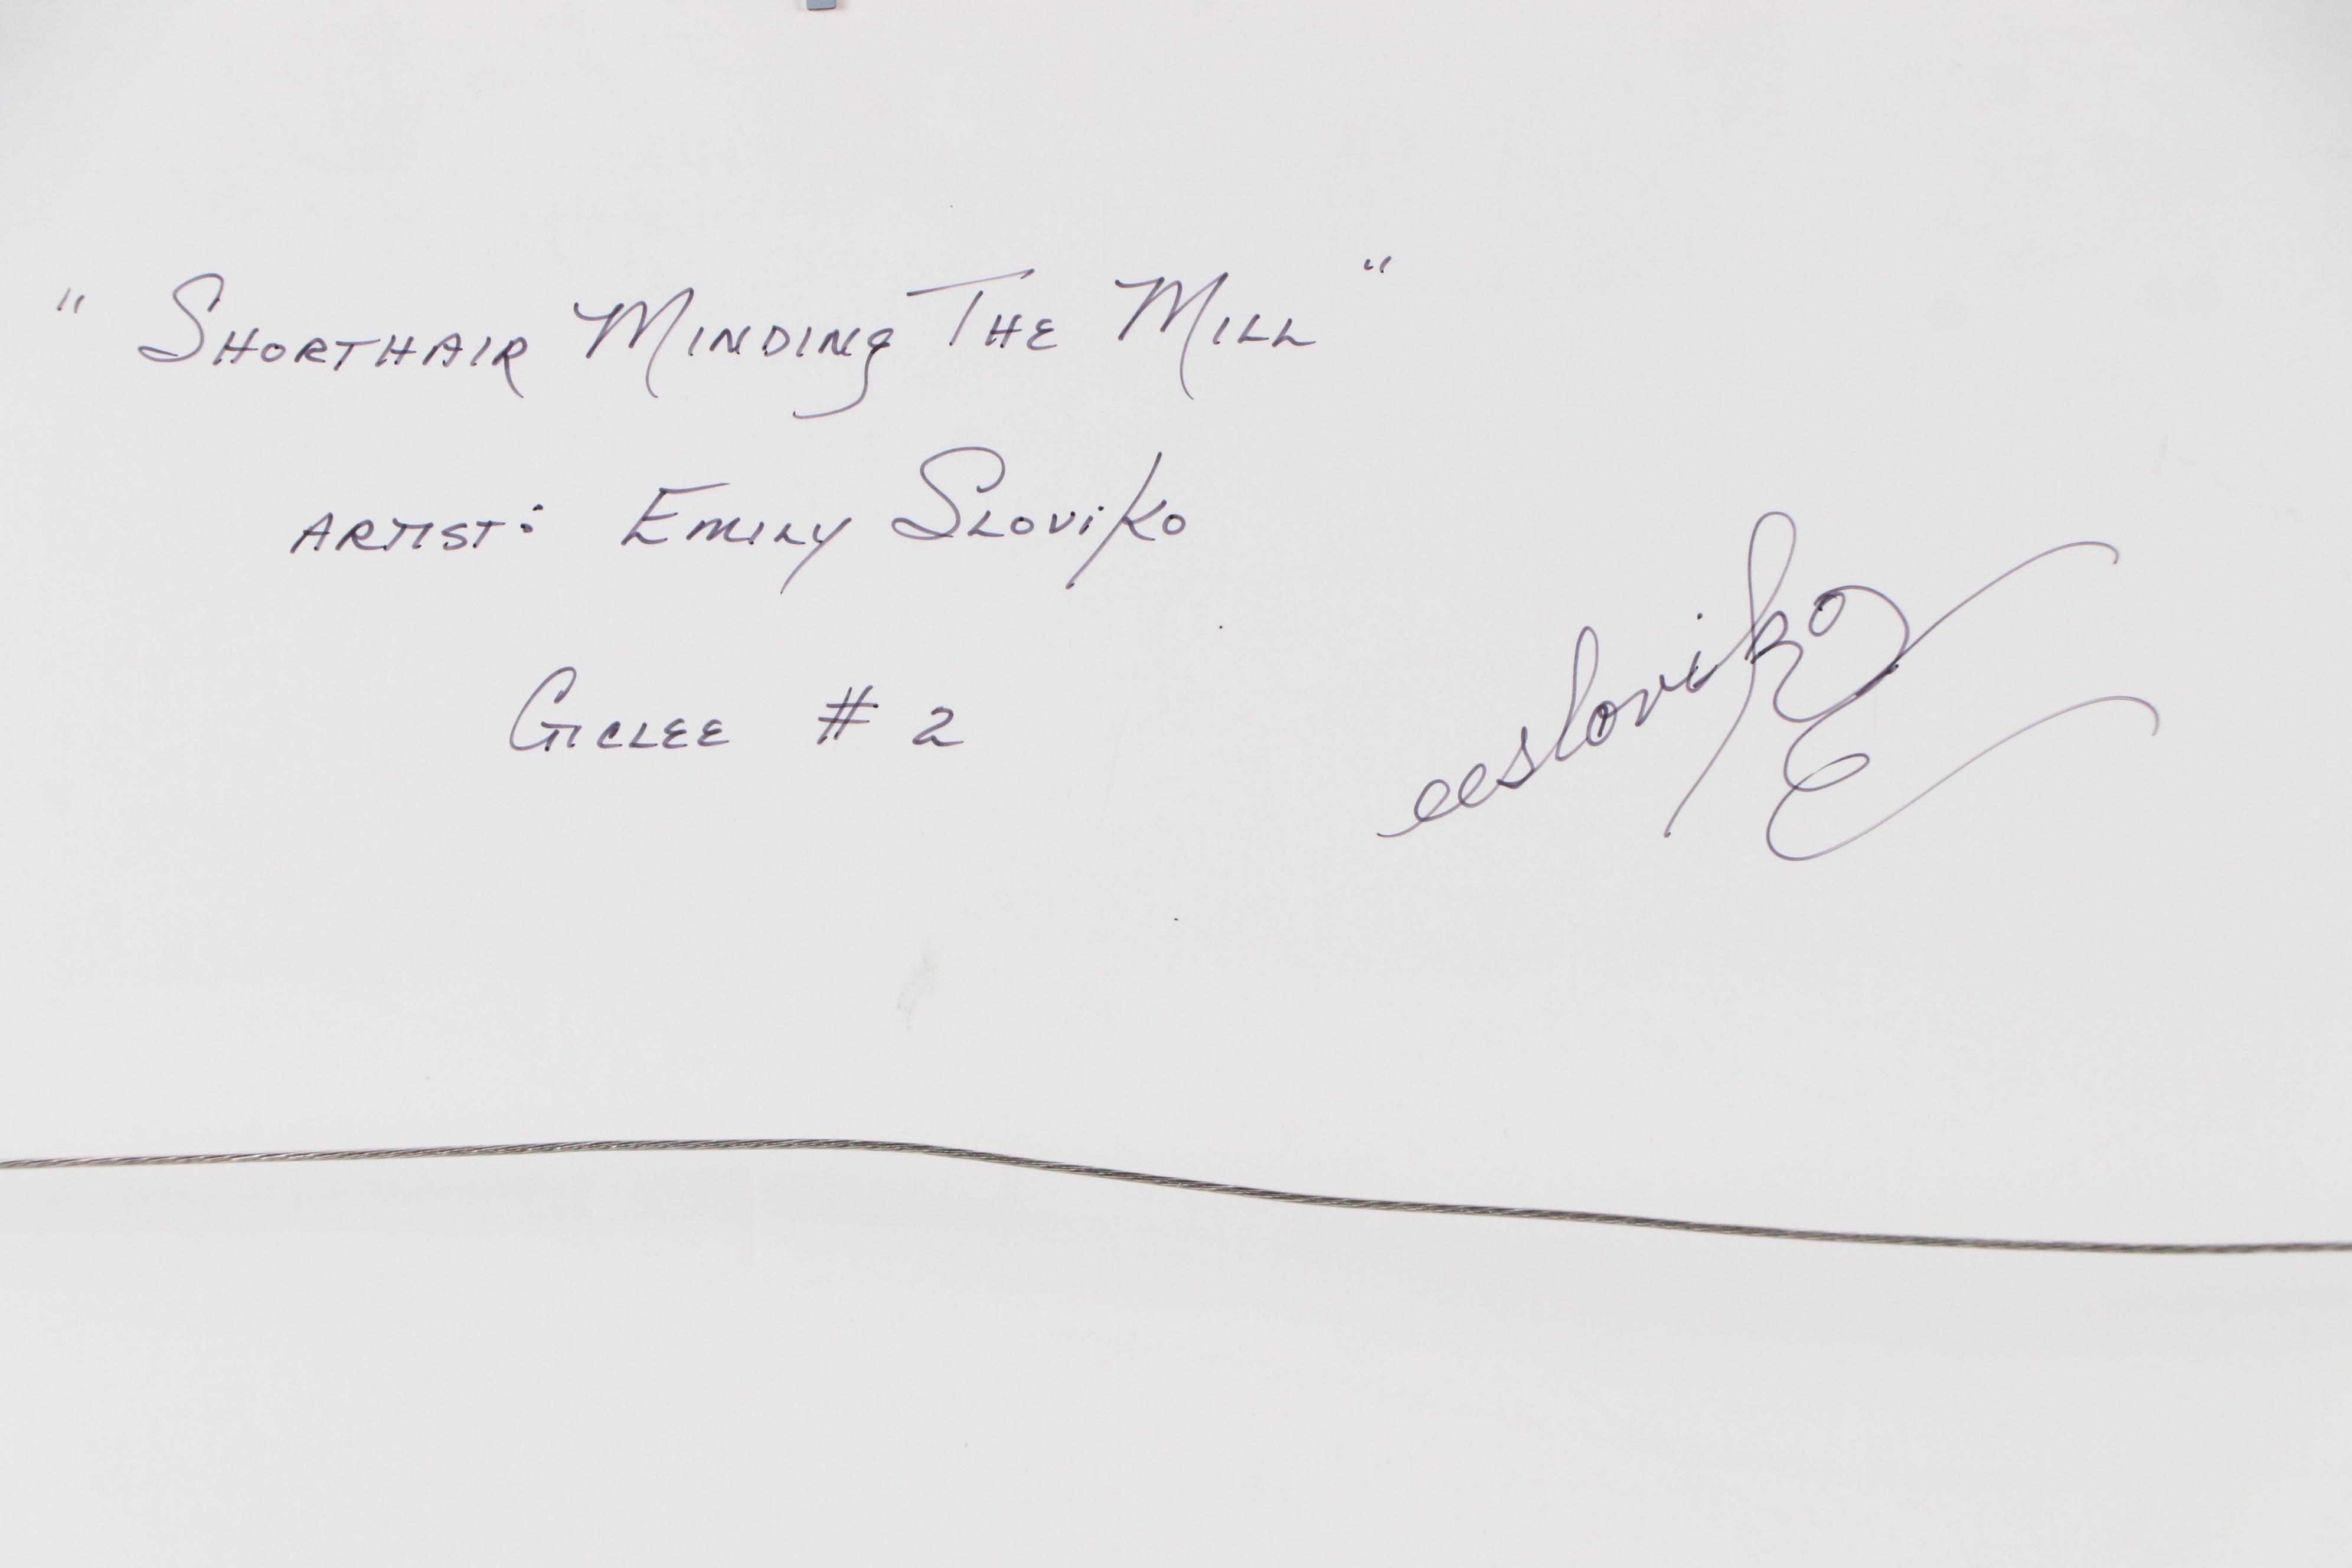 "Shorthair Minding The Mill"
Artist: Emily Sloviko
Giclee # 2
eesloviko